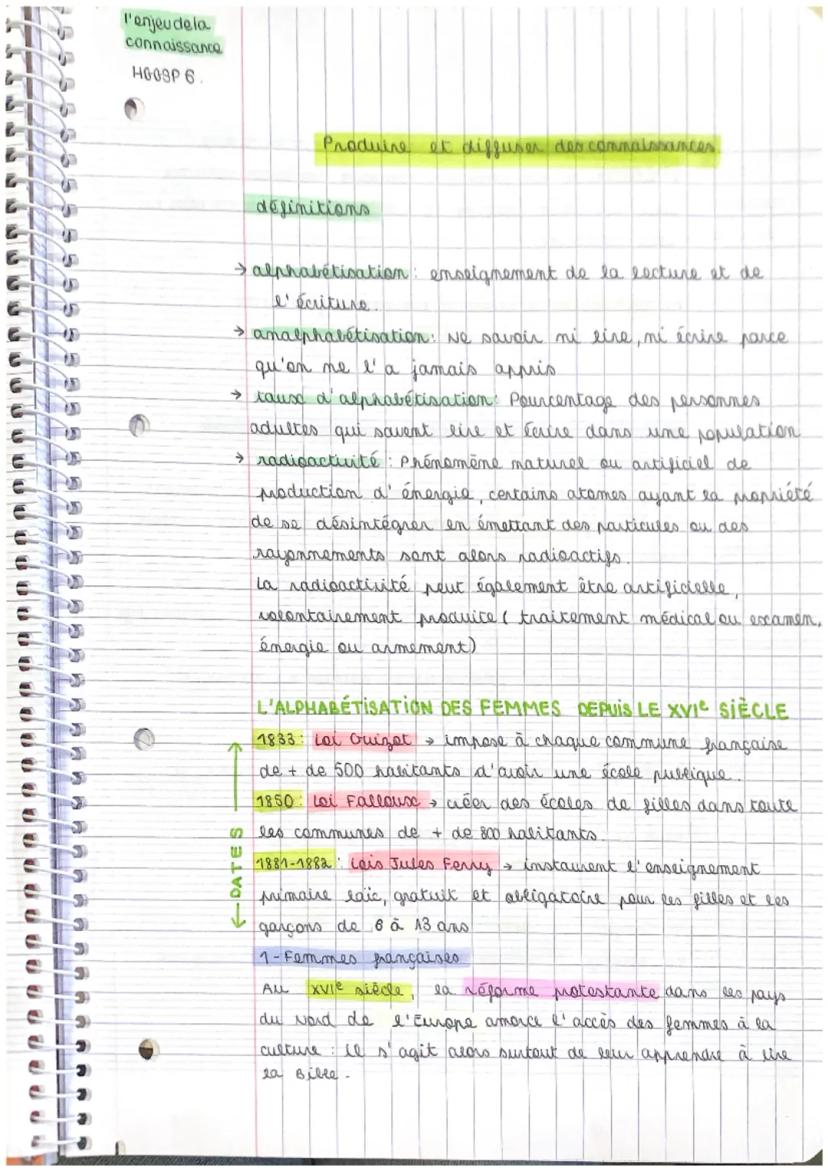 l'enjeu de la
connaissance
HGGSP 6.
Produire et diffuser des connaissances.
définitions
→ alphabétisation : enseignement de la lecture et de
l'écriture.
→ analphabétisation : Ne savoir ni lire, ni écrire parce
qu'on ne l'a jamais appris
→ taux d'alphabétisation : Pourcentage des personnes
adultes qui savent lire et écrire dans une population
→ radioactivité : Phénomène naturel ou artificiel de
production d'énergie, certains atomes ayant la propriété
de se désintégrer en émettant des particules ou des
rayonnements sont alors radioactifs.
La radioactivité peut également être artificielle,
volontairement produite ( traitement médical ou examen,
énergie ou armement)
L'ALPHABÉTISATION DES FEMMES DEPUIS LE XVIe SIÈCLE
← DATES →
1833 : Loi Guizot → impose à chaque commune française
de + de 500 habitants d'avoir une école publique.
1850 : Loi Falloux → créer des écoles de filles dans toute
les communes de + de 800 habitants.
1881-1882 : Lois Jules Ferry → instaurent l'enseignement
primaire laïc, gratuit et obligatoire pour les filles et les
garçons de 6 à 13 ans
1 - Femmes françaises
Au XVIe siècle, la réforme protestante dans les pays
du Nord de l'Europe amorce l'accès des femmes à la
culture : il s'agit alors surtout de leur apprendre à lire
la Bible.